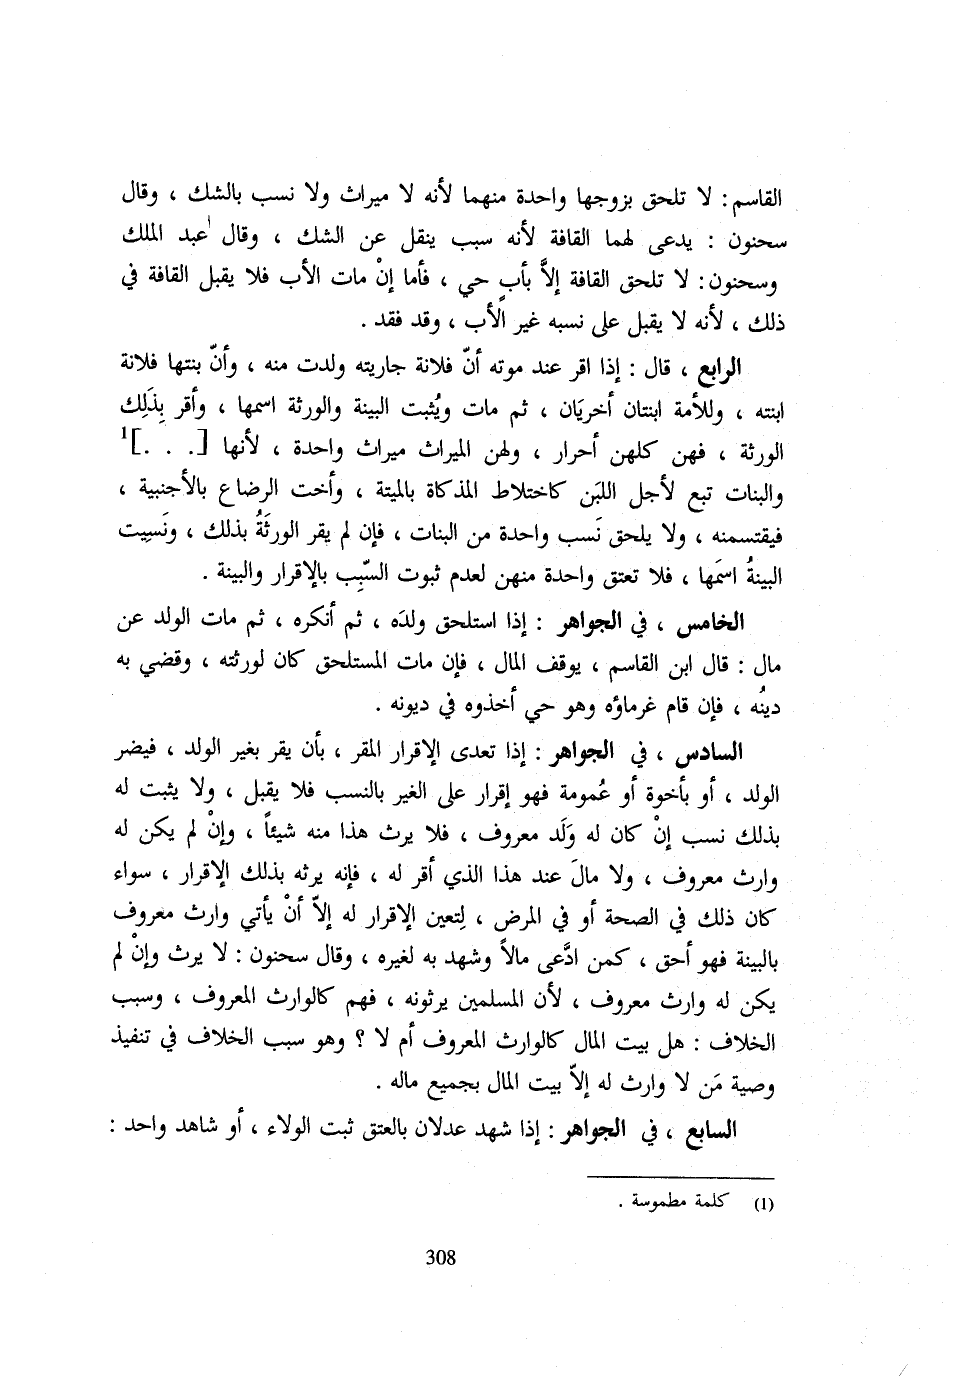 القاسم : لا تلحق بزوجها واحدة منهما لأنه لا ميراث ولا نسب بالشك ، وقال
سحنون : يدعى لهما القافة لأنه سبب ينقل عن الشك ، وقال عبد الملك
وسحنون : لا تلحق القافة إلاَّ بأب حي ، فأما إنْ مات الأب فلا يقبل القافة في
ذلك ، لأنه لا يقبل على نسبه غير الأب ، وقد فقد .
الرابع ، قال : إذا اقر عند موته أنّ فلانة جاريته ولدت منه ، وأنّ بنتها فلانة
ابنته ، وللأمة ابنتان أخريَان ، ثم مات ويُثبت البينة والورثة اسمها ، وأقر بِذَلِك
الورثة ، فهن كلهن أحرار ، ولهن الميراث ميراث واحدة ، لأنها [. . .]1
والبنات تبع لأجل اللبَن كاختلاط المذكاة بالميتة ، وأخت الرضاع بالأجنبية ،
فيقتسمنه ، ولا يلحق نَسب واحدة من البنات ، فإن لم يقر الورثَةُ بذلك ، ونَسِيت
البينةُ اسمَها ، فلا تعتق واحدة منهن لعدم ثبوت السّبِب بالإقرار والبينة .
الخامس ، في الجواهر : إذا استلحق ولدَه ، ثم أنكره ، ثم مات الولد عن
مال : قال ابن القاسم ، يوقف المال ، فإن مات المستلحق كان لورثته ، وقضي به
دينُه ، فإن قام غرماؤه وهو حي أخذوه في ديونه .
السادس ، في الجواهر : إذا تعدى الإقرار المقر ، بأن يقر بغير الولد ، فيضر
الولد ، أو بأخوة أو عُمومة فهو إقرار على الغير بالنسب فلا يقبل ، ولا يثبت له
بذلك نسب إنْ كان له وَلَد معروف ، فلا يرث هذا منه شيئاً ، وإنْ لم يكن له
وارث معروف ، ولا مالَ عند هذا الذي أقر له ، فإنه يرثه بذلك الإقرار ، سواء
كان ذلك في الصحة أو في المرض ، لِتعين الإقرار له إلاّ أنْ يأتي وارث معروف
بالبينة فهو أحق ، كمن ادَّعى مالاً وشهد به لغيره ، وقال سحنون : لا يرث وإنْ لم
يكن له وارث معروف ، لأن المسلمين يرثونه ، فهم كالوارث المعروف ، وسبب
الخلاف : هل بيت المال كالوارث المعروف أم لا ؟ وهو سبب الخلاف في تنفيذ
وصية مَن لا وارث له إلاّ بيت المال بجميع ماله .
السابع ، في الجواهر : إذا شهد عدلان بالعتق ثبت الولاء ، أو شاهد واحد :
(1) كلمة مطموسة .
308